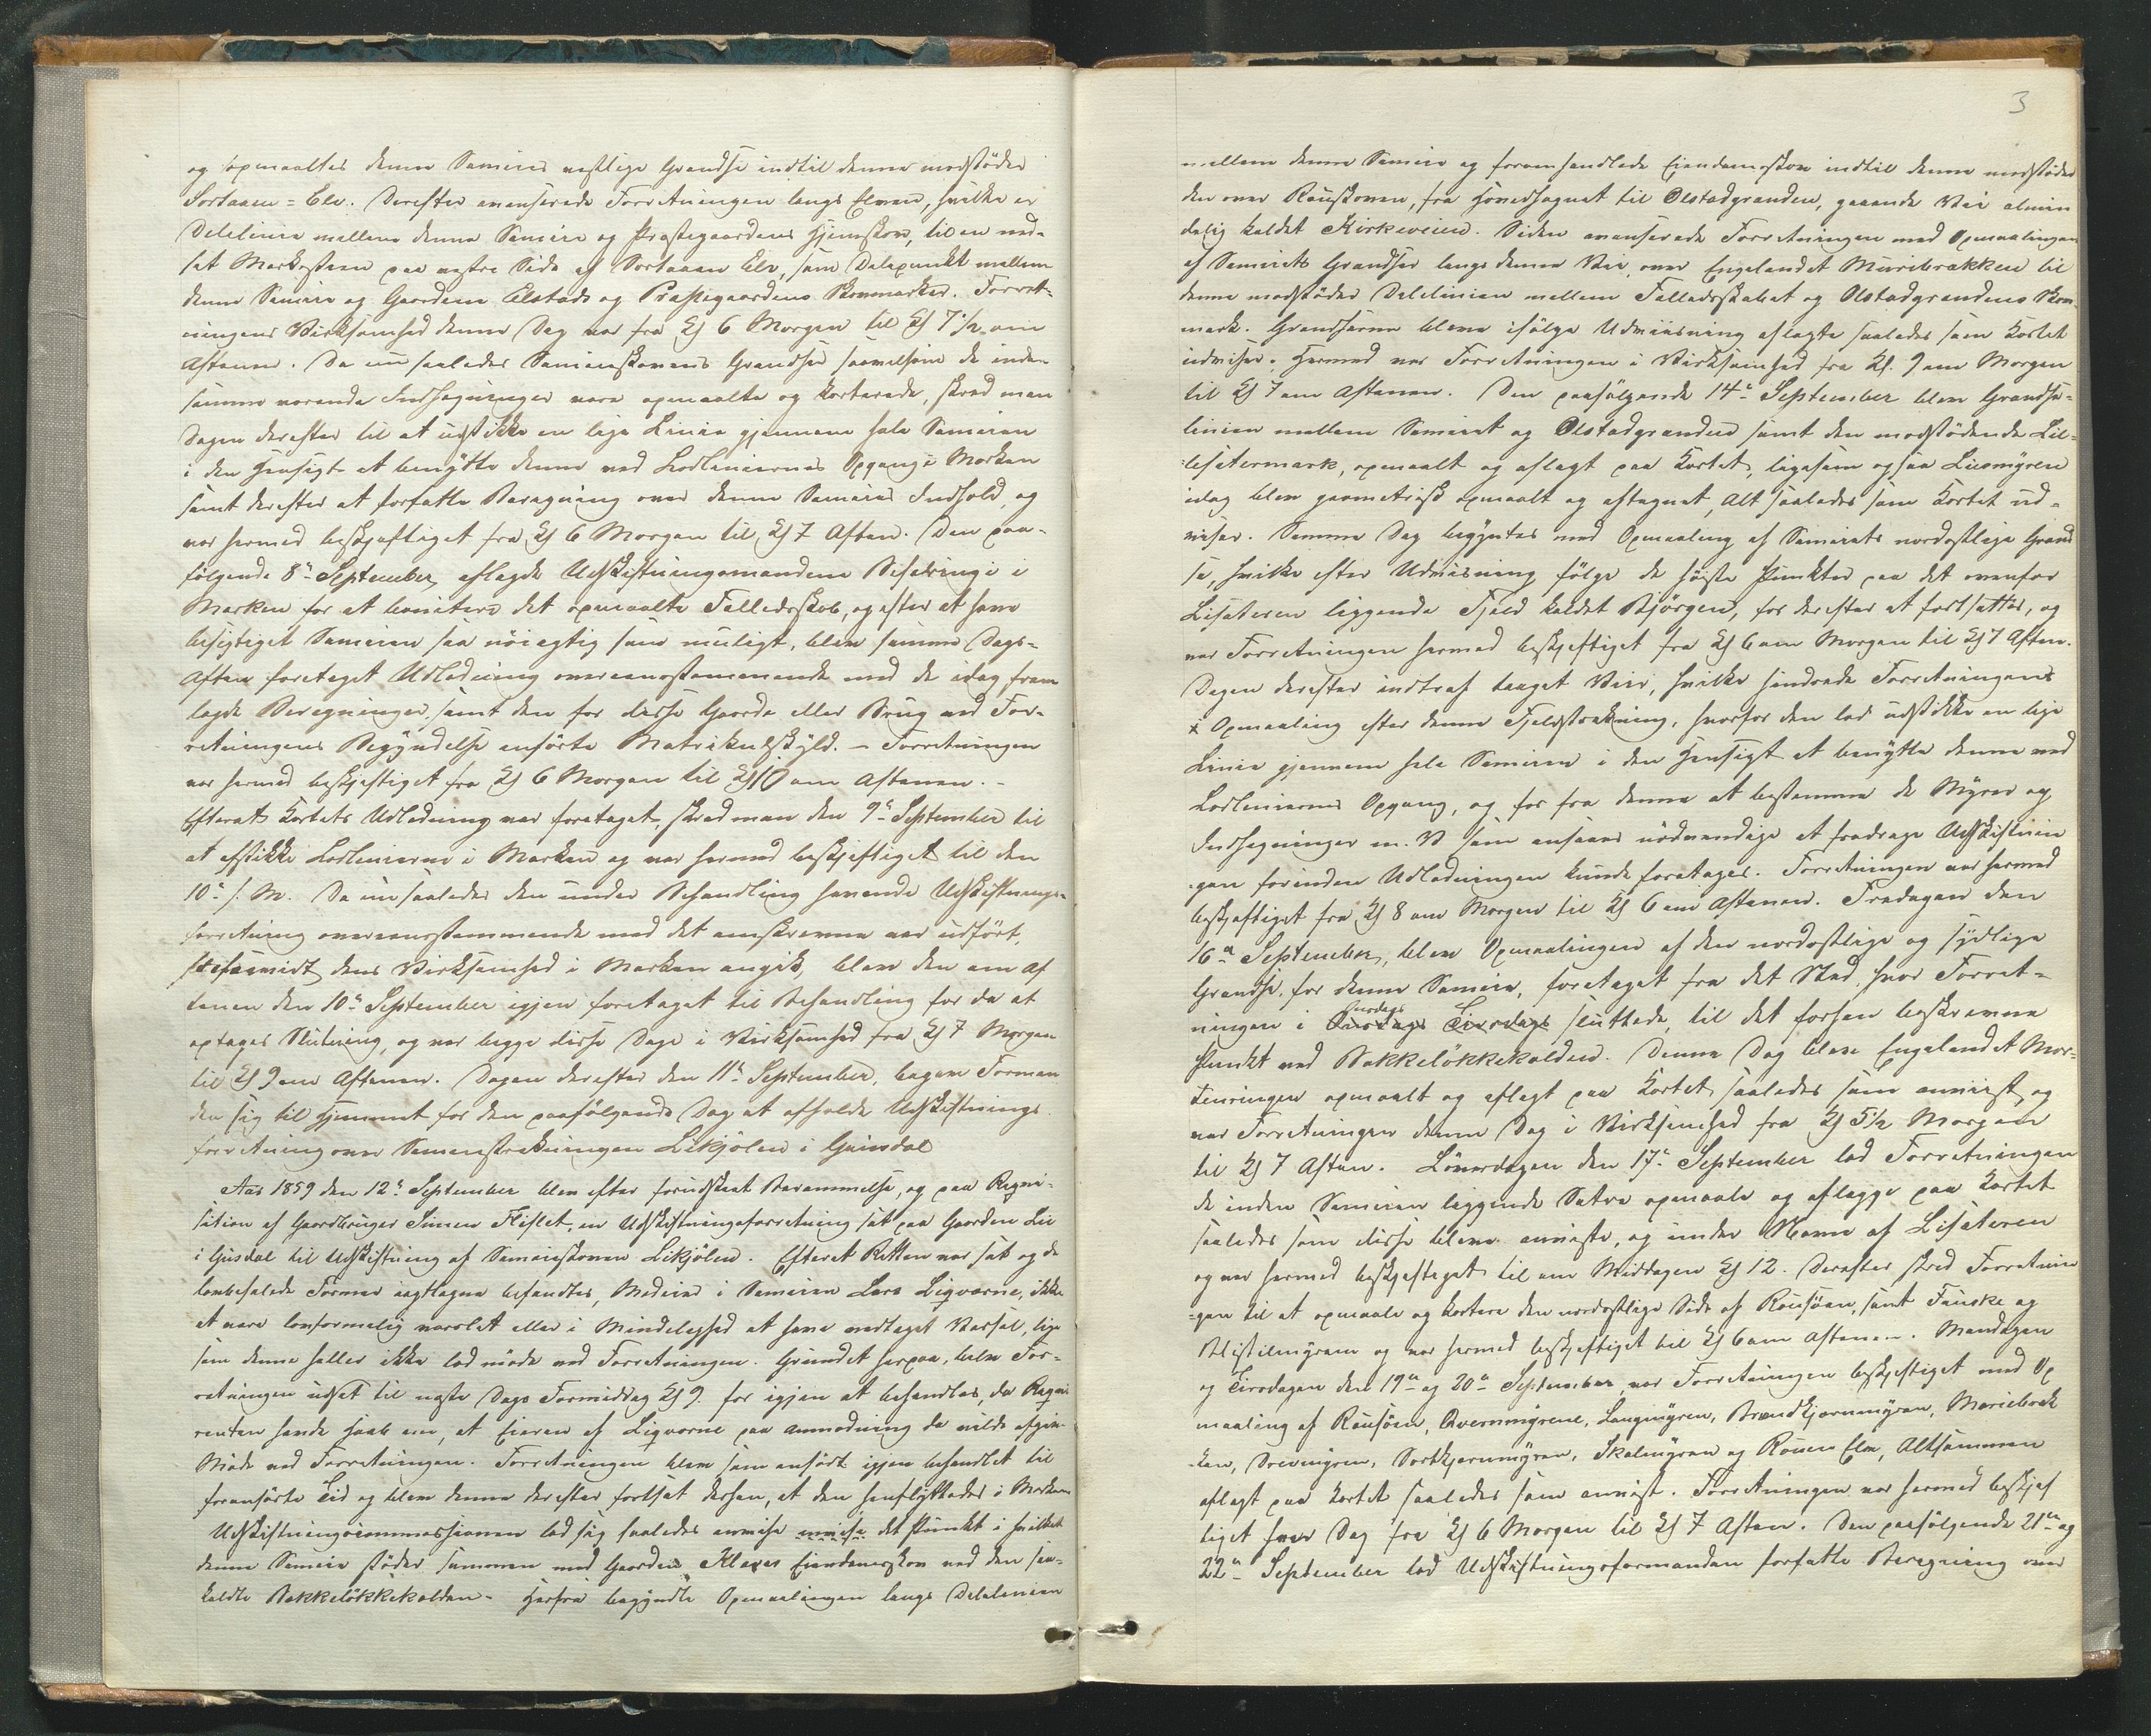 og opmaaltes denne Sameies østlige Grændse indtil denne modstöder
Sortaaen=Elv. Derefter avanserede Forretningen langs Elven, hvilke er
Delelinie mellem denne Sameie og Præstegaardens Hjemskov, til en ned-
sat Markesteen paa vestre Side af Sortaaen Elv, som Delepunkt mellem
denne Sameie og Gaardene Elstads og Præstegaardens Skovmarker. Forret-
ningens Virksomhed denne Dag var fra Kl 6 Morgen til Kl 7 1/2 om
Aftenen. Da nu saaledes Sameieskovens Grændser saavelsom de inden
samme værende Indhegninger vare opmaalte og karterede, skred man
Dagen derefter til at udstikke en lige Linie gjennem hele Sameien
i den Hensigt at benytte denne ved Lodliniernes Opgang i Marken
samt derefter at forfatte Beregning over denne Sameies Indhold, og
var hermed beskjeftiget fra Kl 6 Morgen til Kl 7 Aften. Den paa-
fölgende 8de September aflagde Udskiftningsmændene Befaring i
Marken for at bonitere det opmaalte Fælledsskab, og efter at have
besigtiget Sameien saa nöiagtig som muligt, blev samme Dags-
Aften foretaget Udlodning overeensstemmende med de idag frem
lagde Beregninger samt den for disse Gaarde eller Brug ved For-
retningens Begyndelse anförte Matrikulskyld. – Forretningen
var hermed beskjeftiget fra Kl 6 Morgen til Kl 10 om Aftenen. –
Efterat Kartets Udlodning var foretaget, skred man den 9de September til
at afstikke Lodlinierne i Marken og var hermed beskjeftiget til den
10de s. M. Da nu saaledes den under Behandling havende Udskiftnings-
forretning overeensstemmende med det anskrevne var udfört,
forsaavidt dens Virksomhed i Marken angik, blev den om Af
tenen den 10de September igjen foretaget til Behandling for da at
optages Slutning, og var begge disse Dage i Virksomhed fra Kl 7 Morgen
til Kl 9 om Aftenen. Dagen derefter den 11te September, begav Forman
den sig til Hjemmet for den paafölgende Dag at afholde Udskiftnings
forretning over Sameiestrækningen Likjölen i Gusdal
Aar 1859 den 12te September blev efter forudskeet Berammelse, og paa Reqvi-
sition af Gaardbruger Simen Fliflet, en Udskiftningsforretning sat paa Gaarden Lie
i Gusdal til Udskiftning af Sameieskoven Likjölen. Efterat Retten var sat og de
lovbefalede Former iagttagne befandtes, Medeier i Sameien Lars Ligvarne, ikke
at være lovformelig varslet eller i Mindelighed at have vedtaget Varsel, lige
som denne heller ikke lod möde ved Forretningen. Grundet herpaa, blev For-
retningen udsat til næste Dags Formiddag Kl 9. for igjen at behandles, da Reqvi
renten havde Haab om, at Eieren af Ligvarne paa Anmodning da vilde afgive
Möde ved Forretningen. Forretningen blev som anfört igjen behandlet til
foranförte Tid og blev denne derefter fortsat derhen, at den henflyttedes i Marken
Udskiftningscommissionen lod sig saaledes anvise anvise det Punkt i hvilket
denne Sameie stöder sammen med Gaarden Klæves Eiendomsskov ved den saa-
kaldte Bakkelökkekolden – Herfra begyndte Opmaalingen langs Delelinien
3
mellem denne Sameie og foromhandlede Eiendomsskov indtil denne modstöder
den over Rauskoven, fra Hövedhagnet til Olstadgrenden, gaaende Vei almin
delig kaldet Kirkeveien. Siden avanserede Forretningen med Opmaalingen
af Sameiets Grændser langs denne Vei, over Engelandet Muribrækken til
denne modstöder Delelinien mellem Fælledsskabet og Olstadgrendens Skov
mark. Grændserne bleve ifölge Udviisning aflagte saaledes som Kartet
udviser. Hermed var Forretningen i Virksomhed fra Kl. 9 om Morgen
til Kl 7 om Aftenen. Den paafölgende 14de September blev Grændse-
linien mellem Sameiet og Olstadgrenden samt den modstödende Lil-
lesetermark, opmaalt og aflagt paa Kartet, ligesom ogsaa Liesmyren
idag blev geometrisk opmaalt og aftegnet, Alt saaledes som Kartet ud-
viser. Samme Dag begyntes med Opmaaling af Sameiets nordostlige Grænd
se, hvilke efter Udvisning fölge de höieste Punkter paa det ovenfor
Lisæteren liggende Fjeld kaldet Bjørgen, for derefter at fortsættes, og
var Forretningen hermed beskjeftiget fra Kl 6 om Morgen til Kl 7 Aften.
Dagen derefter indtraf taaget Veir, hvilke hindrede Forretningens
Opmaaling efter denne Fjeldstrækning, hvorfor den lod udstikke en lige
Linie gjennem hele Sameien i den Hensigt at benytte denne ved
Lodliniernes Opgang, og for fra denne at bestemme de Myrer og
Indhegninger m. V som ansaaes nödvendige at fradrage Udskiftnin
gen forinden Udlodningen kunde foretages. Forretningen var hermed
beskjeftiget fra Kl 8 om Morgen til Kl 6 om Aftenen. Fredagen den
16de September, blev Opmaalingen af den nordostlige og sydlige
Grændse for denne Sameie, foretaget fra det Sted, hvor Forret-
ningen i Onsdags Tirsdags sluttede, til det forhen beskrevne
Punkt ved Bakkelökkekolden. Denne Dag blev Engelandet Mor-
tinringen opmaalt og aflagt paa Kartet saaledes som anviist, og
var Forretningen denne Dag i Virksomhed fra Kl 5 1/2 Morgen
til Kl 7 Aften. Löverdagen den 17de September lod Forretningen
de inden Sameien liggende Sætre opmaale og aflægge paa Kartet
saaledes som disse bleve anviste, og under Navn af Lisæteren
og var hermed beskjeftiget til om Middagen Kl 12. Derefter skred Forretnin
gen til at opmaale og kartere den nordostlige Side af Rausöen, samt Fauske og
Blistilmyrene og var hermed beskjeftiget til Kl 6 om Aftenen. Mandagen
og Tirsdagen den 19de og 20de September var Forretningen beskjeftiget med Op
maaling af Rausöen, Qvernmyrene, Langmyren, Brændkjernmyren, Mariebræk
ken, Svevmyren, Sortkjernmyren, Skalmyren og Rauen Elv, Altsammen
aflagt paa Kartet saaledes som anvist. Forretningen var hermed beskjef
tiget hver Dag fra Kl 6 Morgen til Kl 7 Aften. Den paafölgende 21de og
22de September lod Udskiftningsformanden forfatte Beregning over